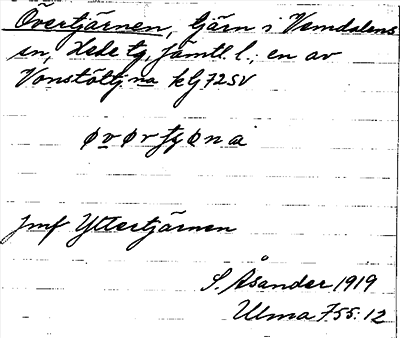 Övertjärnen, tjärn i Vemdalens
sn, Hede tg, Jämtl. l.; en av
Vonstöttjna kg 72SV
øvørtjøna
jmf Yttertjärnen
S. Åsander 1919
Ulma 755:12